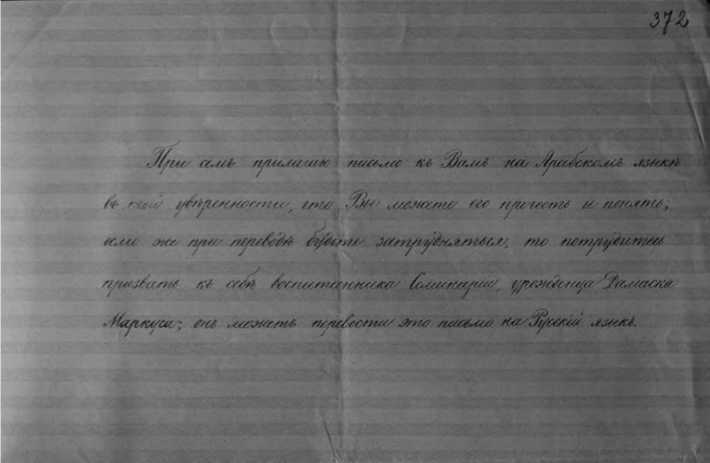 372
При семъ прилагаю письмо къ Вамъ на Арабскомъ языкѣ
въ той увѣренности, что Вы можете его прочесть и понять;
если же при переводѣ будете затрудняться, то потрудитесь
призвать къ себѣ воспитанника Семинаріи, урожденца Дамаска
Маркуса; онъ можетъ перевести это письмо на Русскій языкъ.